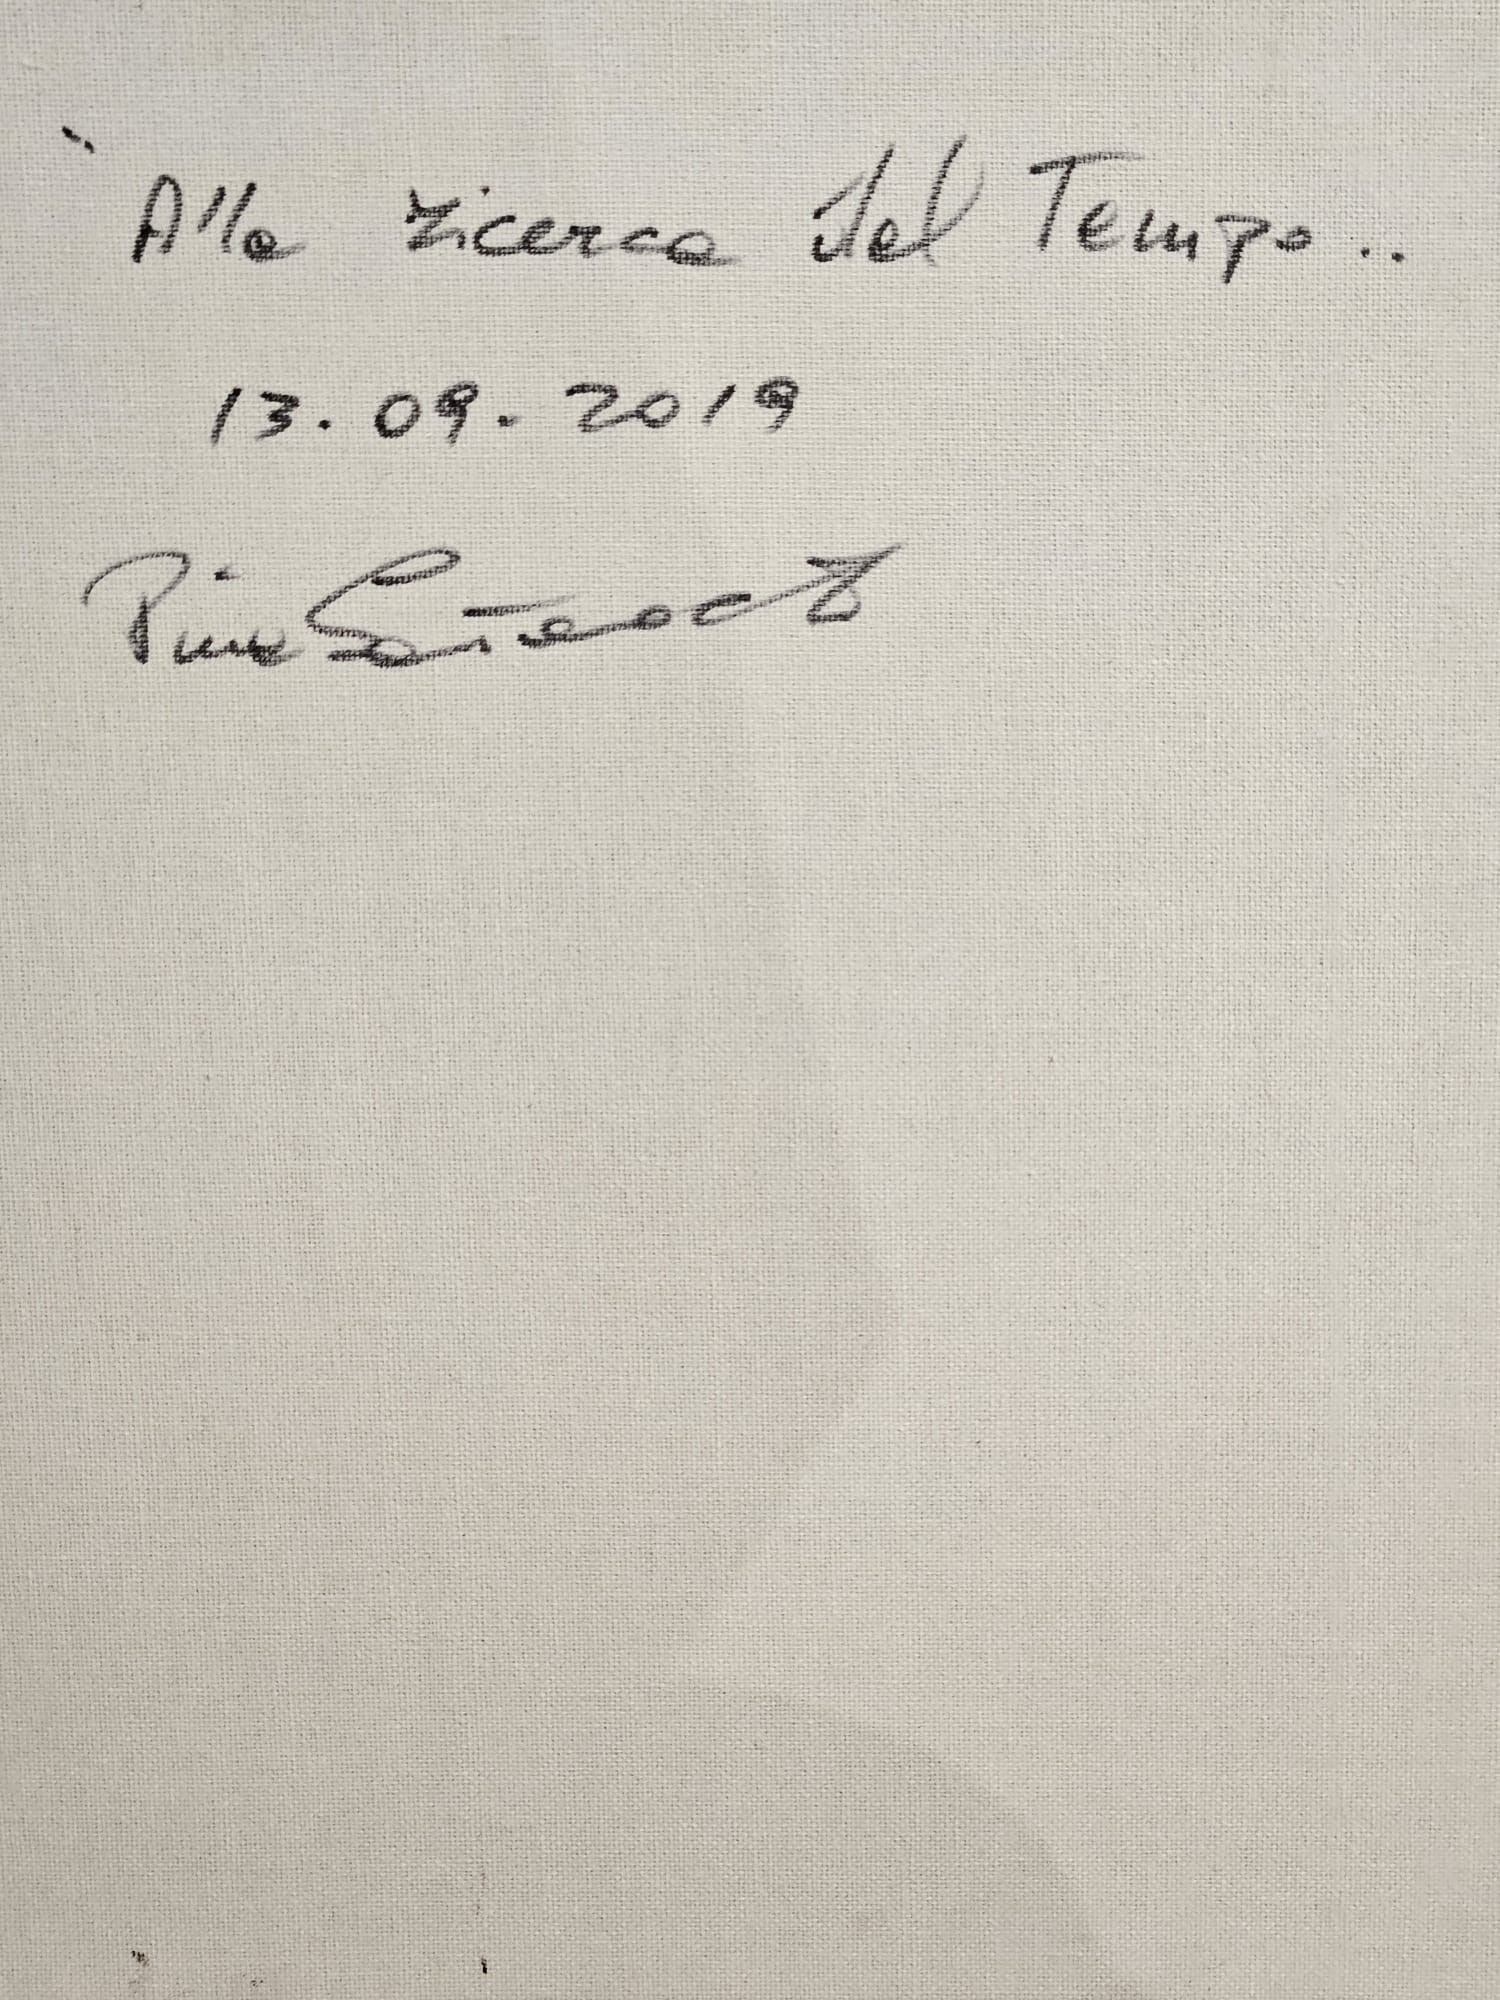 " Alla ricerca del Tempo ..
13.09.2019